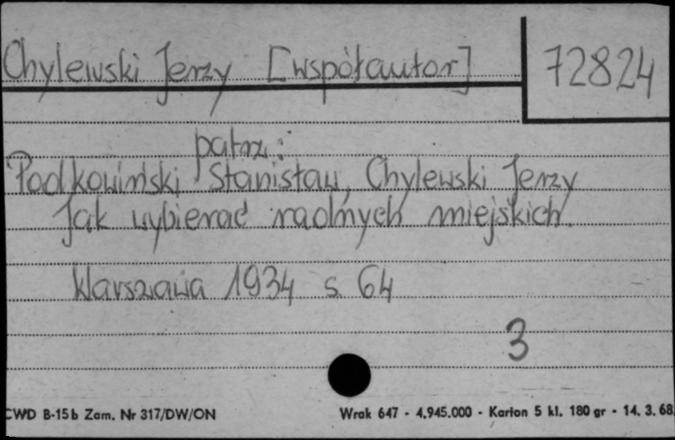 Chylewski Jerzy [współautor]
72824
patrz:
Podkowiński Stanisław, Chylewski Jerzy
Jak wybierać radnych miejskich.
Warszawa 1934 s. 64
3
CWD B-15b Zam. Nr 317/DW/ON
Wrak 647 - 4.945.000 - Karton 5 kl. 180 gr - 14. 3. 68